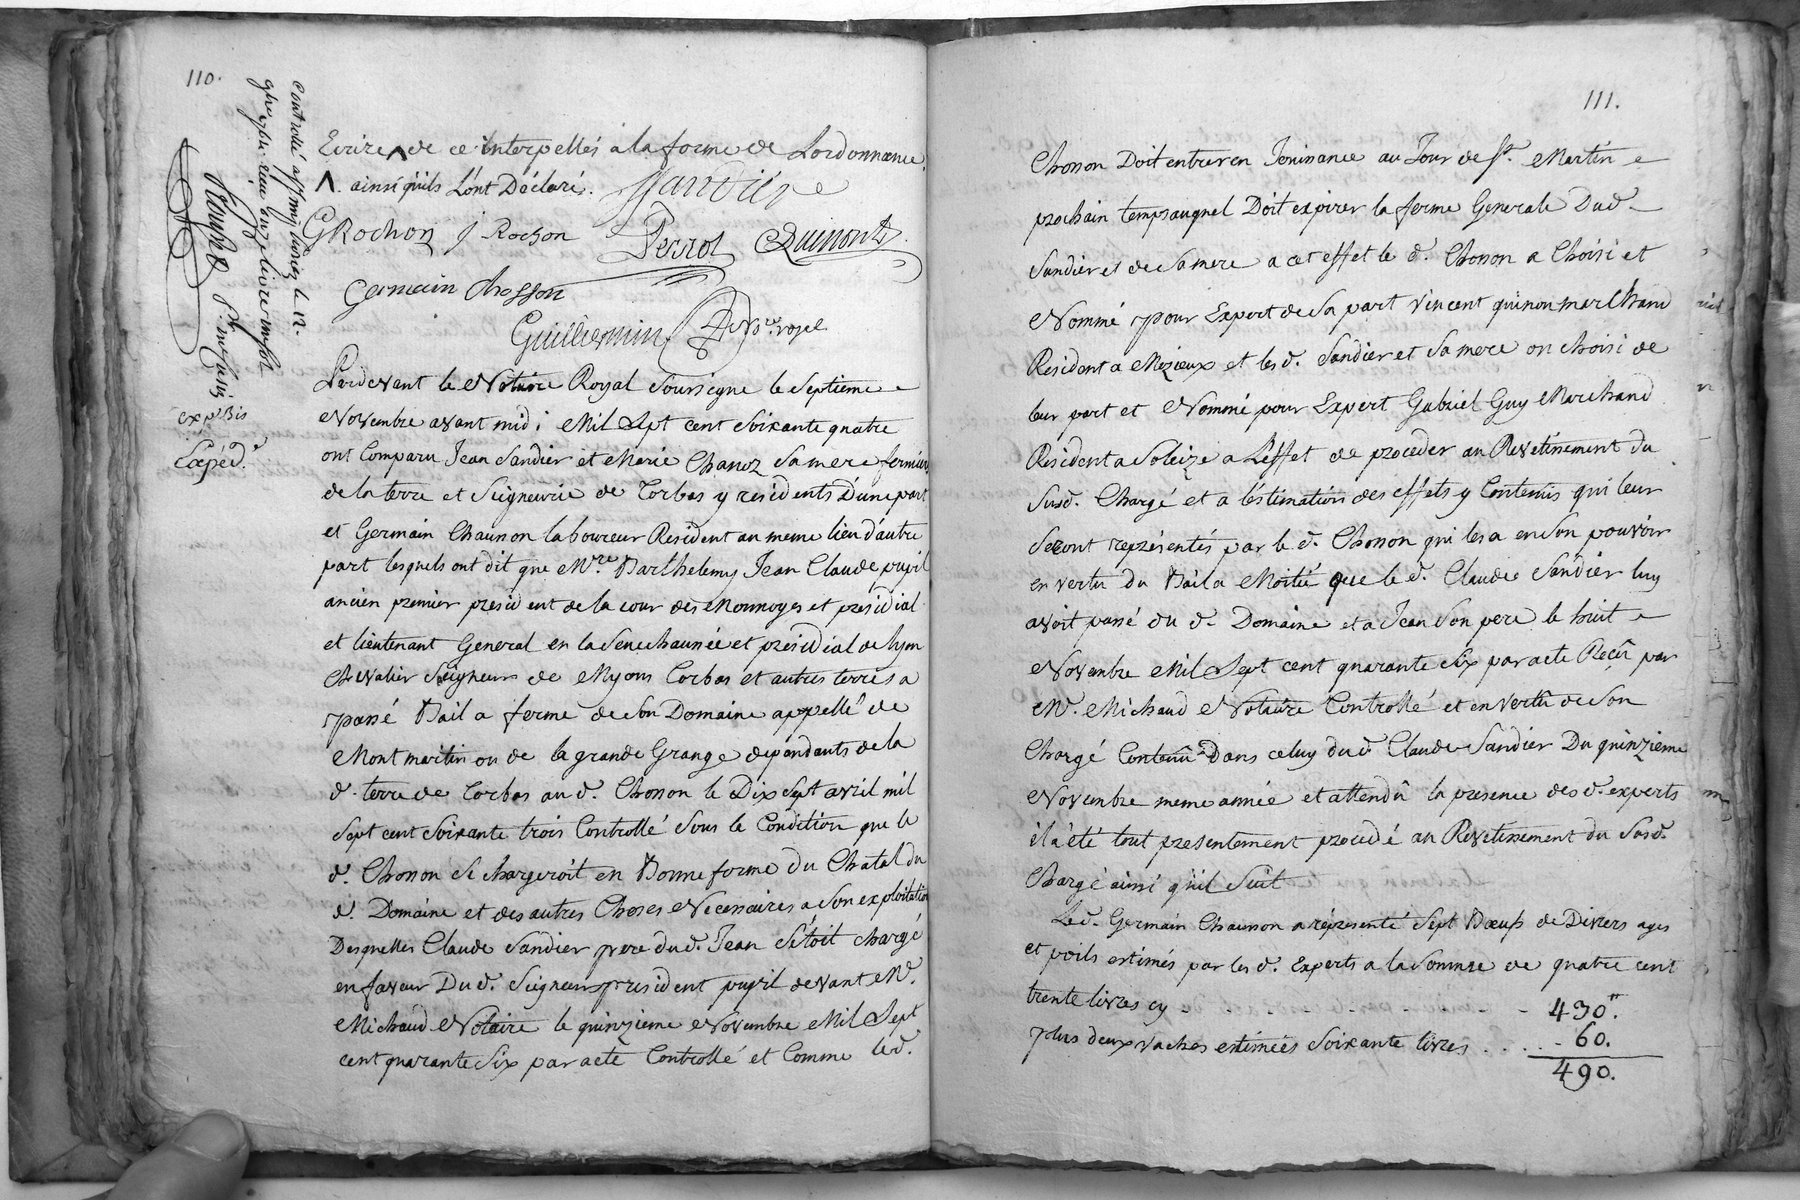 110.
Controllé a St Simph. le 12.
Expd Bis
Expéd.
Ecrire ʌ de ce interpellés a la forme de Lordonnance
ʌ. ainsi quils L'ont Déclaré. Sandier
G Rochon J Rochon Perrot Dumont
germain Chosson
Guillermin Nre. royal
Pardevant le Notaire Royal Soussigne le Septieme
Novembre avant midi Mil Sept cent Soixante quatre
ont Comparu Jean Sandier et Marie Chanoz Sa mere fermiers
de la terre et Seigneurie de Corbas y residents D'une part
et Germain Chausson laboureur Resident au meme lieu d'autre
part lesquels ont dit que Mre. Barthelemy Jean Claude pupil
ancien premier president de la cour des Monnoyes et presidial
et lieutenant General en la Senechaussée et présidial de Lyon
Chevalier Seigneur de Myons Corbas et autres terres a
passé Bail a ferme de Son Domaine appellé de
Montmartin ou de la grande Grange dependants de la
d. terre de Corbas au d. Chosson le Dix Sept avril mil
Sept cent Soixante trois Controllé Sous la Condition que le
d. Chosson Se chargeroit en Bonne forme du Chatal du
d. Domaine et des autres Choses Necessaires a Son exploitation
Desquelles Claude Sandier pere dud. Jean S'étoit chargé
en faveur Du d. Seigneur president pupil devant Me.
Michaud Notaire le quinzieme Novembre Mil Sept
cent quarante Six par acte Controllé et Comme led.
111.
Chosson Doit entrer en Jouissance au Jour de St. Martin
prochain temps auquel Doit expirer la ferme Generale Dud.
Sandier et de Sa mere a cet effet le d. Chosson a Choisi et
Nommé pour Expert de Sa part Vincent quinon marchand
Resident a Mezieux et les d. Sandier et Sa mere on choisi de
leur part et Nommé pour Expert Gabriel Guy Marchand
Resident a Soleize a L'effet de proceder au Revetissement du
Susd. Chargé et a l'estimation des effets y Contenus qui leur
Seront représentés par le d. Chosson qui les a en Son pouvoir
en vertu du Bail a Moitié que le d. Claude Sandier luy
avoit passé du d. Domaine et a Jean Son pere le huit
Novembre Mil Sept cent quarante Six par acte Recû par
Me. Michaud Notaire Controllé et en vertû de Son
Chargé Contenû Dans celuy dud. Claude Sandier Du quinzieme
Novembre meme année et attendû la presence des d. experts
il a été tout presentement procedé au Revetissement du Susd.
Chargé ainsi quil Suit
Led. Germain Chausson a représenté Sept Bœufs de Divers ages
et poils estimés par les d. Experts a la Somme de quatre cent
trente livres cy - - - 430.
Plus deux vaches estimées Soixante livres . . . . - 60.
490.